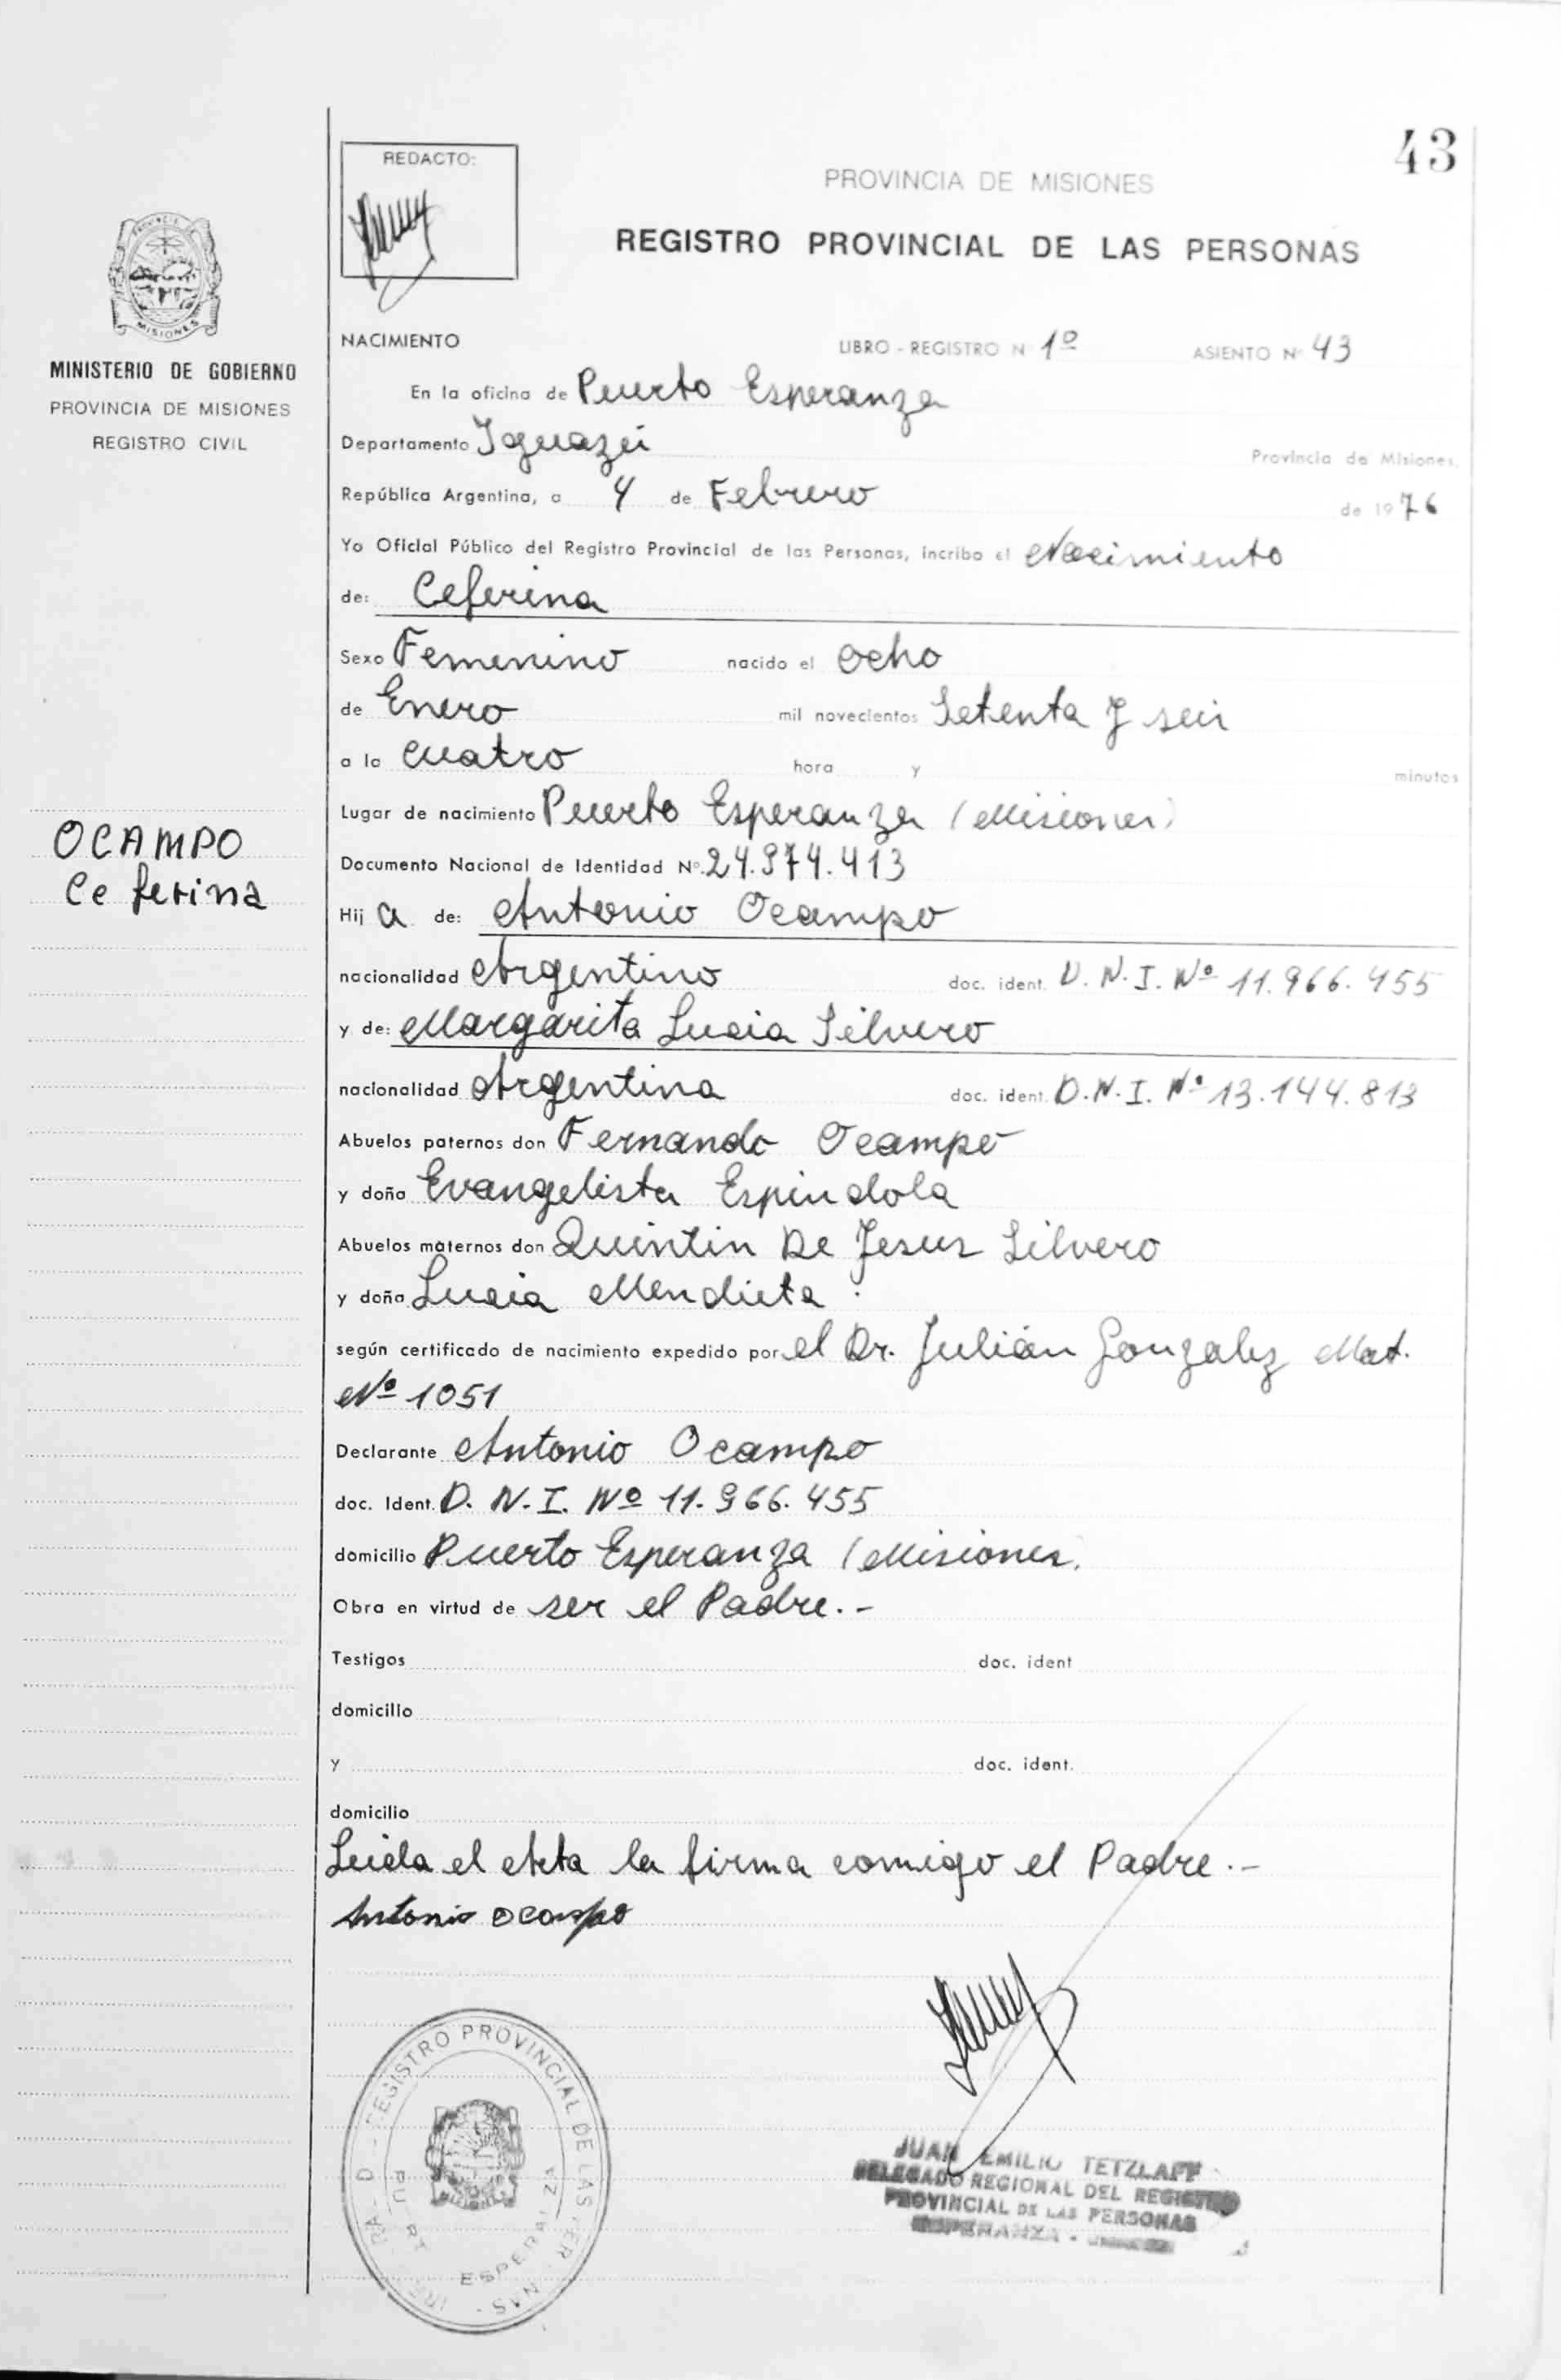 43
REDACTO:
PROVINCIA DE MISIONES
REGISTRO PROVINCIAL DE LAS PERSONAS
MISIONES
MINISTERIO DE GOBIERNO
PROVINCIA DE MISIONES
REGISTRO CIVIL
NACIMIENTO LIBRO - REGISTRO N 1º ASIENTO Nº 43
En la oficina de Puerto Esperanza
Departamento Iguazú Provincia de Misiones,
República Argentina, a 4 de Febrero de 1976
Yo Oficial Público del Registro Provincial de las Personas, incribo el Nacimiento
de: Ceferina
Sexo Femenino nacido el ocho
de Enero mil novecientos Setenta y seis
a la cuatro hora y minutos
Lugar de nacimiento Puerto Esperanza (Misiones)
OCAMPO
Ceferina
Documento Nacional de Identidad Nº. 24.974.413
Hij a de: Antonio Ocampo
nacionalidad Argentino doc. ident. D.N.I. Nº 11.966.455
y de: Margarita Lucia Silvero
nacionalidad Argentina doc. ident. D.N.I. Nº 13.144.813
Abuelos paternos don Fernando Ocampo
y doña Evangelista Espindola
Abuelos maternos don Quintin De Jesus Silvero
y doña Lucia Mendieta.
según certificado de nacimiento expedido por el Dr. Julián Gonzalez Mat.
Nº 1051
Declarante Antonio Ocampo
doc. Ident. D.N.I. Nº 11.966.455
domicilio Puerto Esperanza (Misiones.
Obra en virtud de ser el Padre.-
Testigos doc. ident
domicilio
y doc. ident.
domicilio
Leida el Acta la firma comigo el Padre.-
Antonio Ocampo
REGISTRO PROVINCIAL DE LAS PER
JUAN EMILIO TETZLAFF
DELEGADO REGIONAL DEL REGISTRO
PROVINCIAL DE LAS PERSONAS
ESPERANZA -